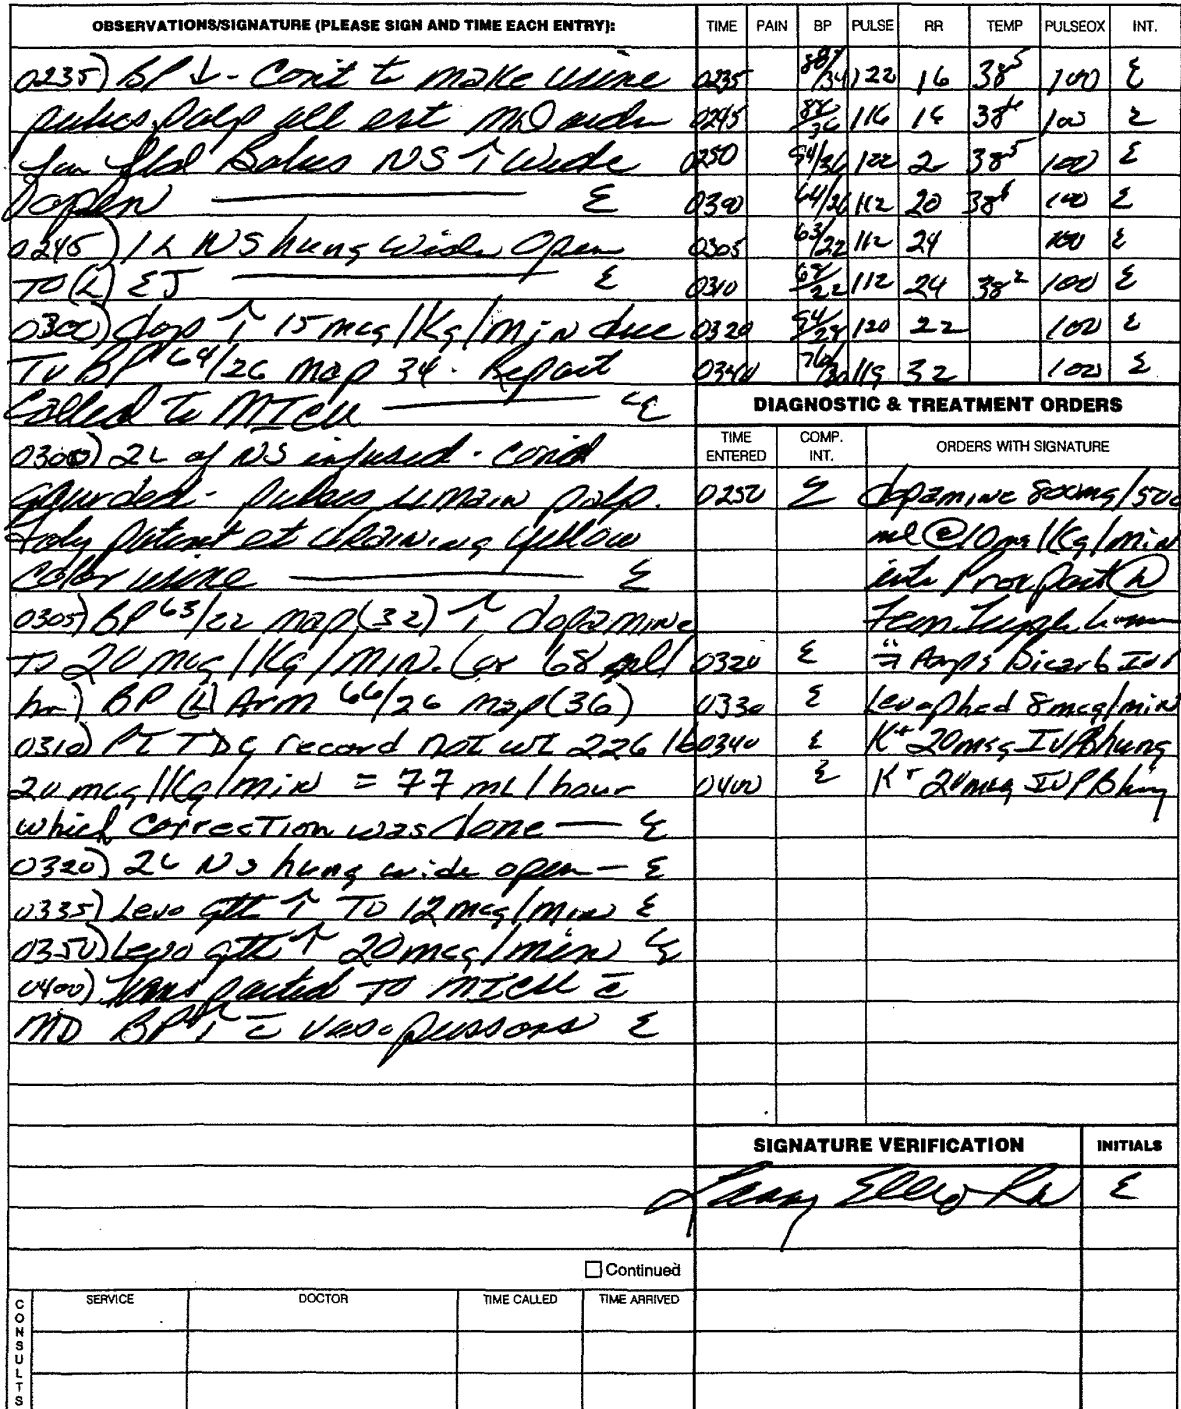 OBSERVATIONS/SIGNATURE (PLEASE SIGN AND TIME EACH ENTRY):
0235) BP ↓ - Con't to make urine
pulses palp all ext MD
NS ↑ Wide
open E
0245) 1L NS hung Wide Open
TO (L) EJ E
0300) dop ↑ 15 mcg/Kg/min due
To BP 64/26 map 34. Report
Called to MICU E
0300) 2L of NS infused - cond
guarded - pulses remain palp.
Foley patent et draining yellow
color urine E
0305) BP 63/22 map (32) ↑ dopamine
TO 20 mcg/Kg/MIN. (or 68 ml/
hr) BP (L) Arm 66/26 map (36)
0310) PT TDC record not wt 226 lb
20 mcg/Kg/min = 77 mL/hour
which correction was done — E
0320) 2L NS hung wide open — E
0335) Levo gtt ↑ TO 12 mcg/min E
0350) Levo gtt ↑ 20 mcg/min E
0400) Transported TO MICU c̄
MD BP ↑ c̄ vasopressors E
TIME PAIN BP PULSE RR TEMP PULSEOX INT.
0235 88/34 122 16 38⁵ 100 E
0245 88/36 116 16 100 E
0250 54/36 122 2 38⁵ 100 E
0300 64/26 112 20 100 E
0305 63/22 112 24 100 E
0310 68/22 112 24 38² 100 E
0320 54/29 120 22 100 E
0340 76/30 119 32 100 E
DIAGNOSTIC & TREATMENT ORDERS
TIME ENTERED COMP. INT. ORDERS WITH SIGNATURE
0250 E dopamine 800mg/500
ml @ 10 /Kg/min
into Prox port
Fem Triple
0320 E Amps Bicarb
0330 E Levophed 8mcg/min
0340 E K+ 20meq IVPB hung
0400 E K+ 20meq IVPB hung
SIGNATURE VERIFICATION INITIALS
RN E
Continued
CONSULTS
SERVICE DOCTOR TIME CALLED TIME ARRIVED